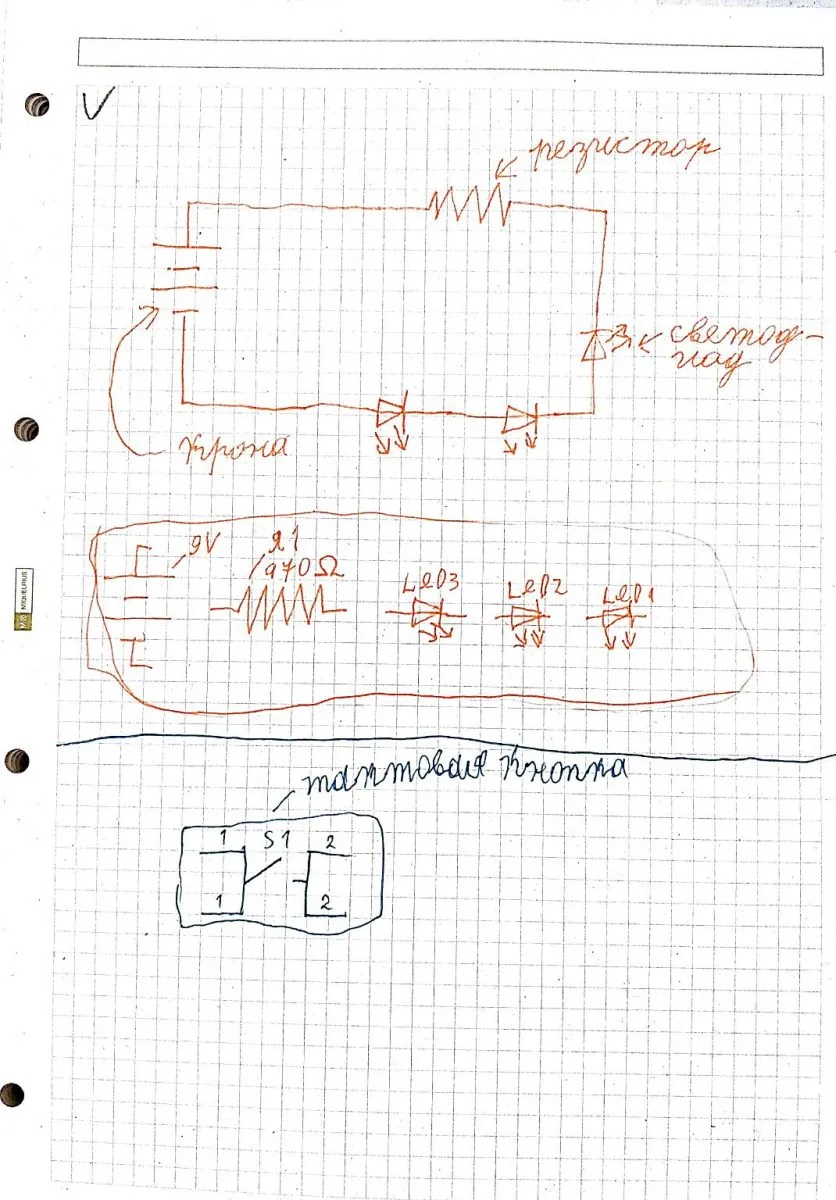 V
резистор
светод-
иод
Крона
9V
R1
470Ω
LED3
LED2
LED1
тактовая кнопка
1 S1 2
1 2
MIQUELRIUS